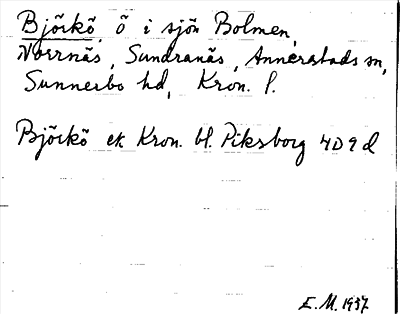 Björkö, ö i sjön Bolmen,
Norrnäs, Sundranäs, Annerstads sn,
Sunnerbo hd, Kron. l.
Björkö ek Kron. bl. Piksborg 4D9d
E.M. 1937